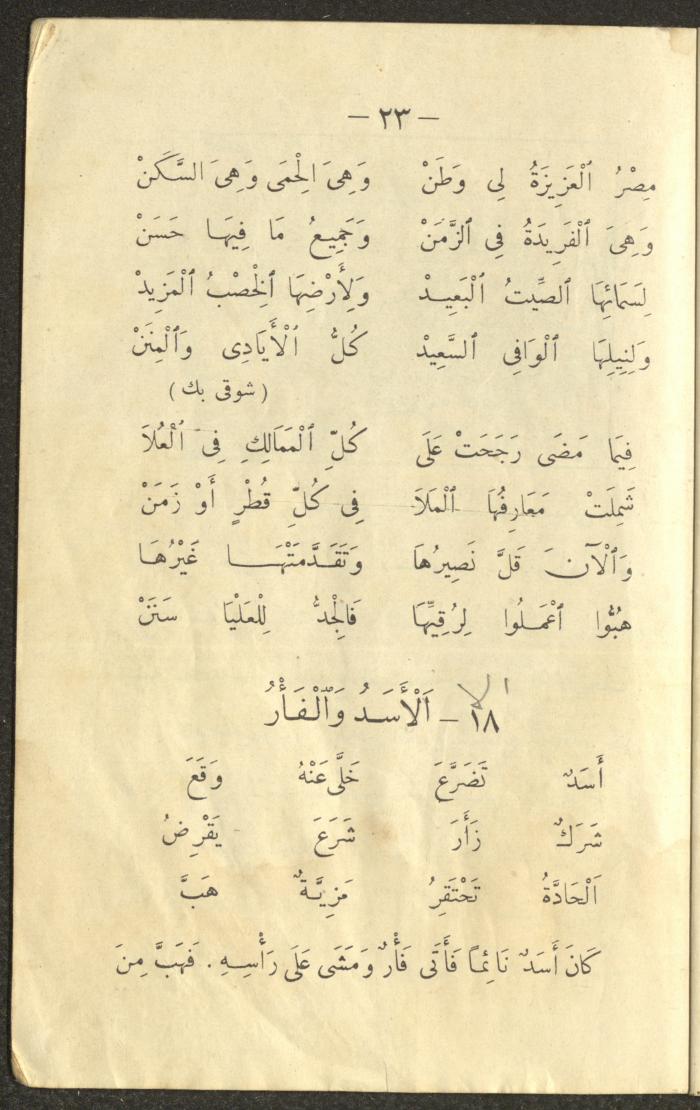 — ٢٣ —
مِصْرُ ٱلْعَزِيزَةُ لِى وَطَنْ وَهِىَ الْحِمَى وَهِىَ السَّكَنْ
وَهِىَ ٱلْفَرِيدَةُ فِى ٱلزَّمَنْ وَجَمِيعُ مَا فِيهَا حَسَنْ
لِسَمَائِهَا ٱلصِّيتُ ٱلْبَعِيدْ وَلِأَرْضِهَا ٱلْخِصْبُ ٱلْمَزِيدْ
وَلِنِيلِهَا ٱلْوَافِى ٱلسَّعِيدْ كُلُّ ٱلْأَيَادِى وَٱلْمِنَنْ
(شوقى بك)
فِيمَا مَضَى رَجَحَتْ عَلَى كُلِّ ٱلْمَمَالِكِ فِى ٱلْعُلاَ
شَمِلَتْ مَعَارِفُهَا ٱلْمَلاَ فِى كُلِّ قُطْرٍ أَوْ زَمَنْ
وَٱلْآنَ قَلَّ نَصِيرُهَا وَتَقَدَّمَتْهَا غَيْرُهَا
هبُّوا ٱعْمَلُوا لِرُقِيِّهَا فَالْجِدُّ لِلْعَلْيَا سَنَنْ
١٨ — اَلْأَسَدُ وَٱلْفَأْرُ
أَسَدٌ تَضَرَّعَ خَلَّى عَنْهُ وَقَعَ
شَرَكٌ زَأَرَ شَرَعَ يَقْرِضُ
اَلْحَادَّةُ تَحْتَقِرُ مَزِيَّةٌ هَبَّ
كَانَ أَسَدٌ نَائِمًا فَأَتَى فَأْرٌ وَمَشَى عَلَى رَأْسِهِ . فَهَبَّ مِنَ